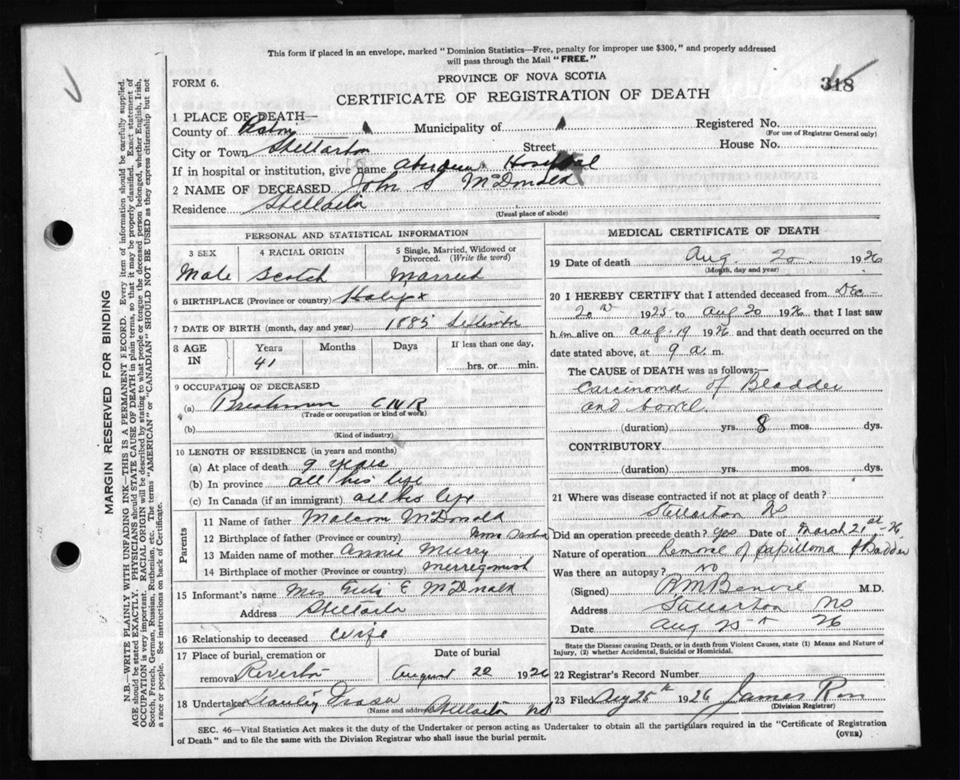 This form if placed in an envelope, marked "Dominion Statistics—Free, penalty for improper use $300," and properly addressed
will pass through the Mail "FREE."
PROVINCE OF NOVA SCOTIA
318
FORM 6.
CERTIFICATE OF REGISTRATION OF DEATH
1 PLACE OF DEATH—
County of Municipality of Registered No.
(For use of Registrar General only)
City or Town Stellarton Street House No.
If in hospital or institution, give name Aberdeen Hospital
2 NAME OF DECEASED John S McDonald
Residence Stellarton
(Usual place of abode)
MARGIN RESERVED FOR BINDING
N.B.—WRITE PLAINLY WITH UNFADING INK—THIS IS A PERMANENT RECORD. Every item of information should be carefully supplied.
AGE should be stated EXACTLY. PHYSICIANS should STATE CAUSE OF DEATH in plain terms, so that it may be properly classified. Exact statement of
OCCUPATION is very important. RACIAL ORIGIN will be described by stating to what people or tongue the deceased person belonged, whether English, Irish,
Scotch, French, German, Russian, Ruthenian, etc. The terms "AMERICAN" or "CANADIAN" SHOULD NOT BE USED as they express citizenship but not
a race or people. See instructions on back of Certificate.
PERSONAL AND STATISTICAL INFORMATION
3 SEX
Male
4 RACIAL ORIGIN
Scotch
5 Single, Married, Widowed or
Divorced. (Write the word)
Married
6 BIRTHPLACE (Province or country) Halifax
7 DATE OF BIRTH (month, day and year) 1885 September
8 AGE IN
Years Months Days If less than one day,
41 hrs. or min.
9 OCCUPATION OF DECEASED
(a) Breakman CNR
(Trade or occupation or kind of work)
(b)
(Kind of industry)
10 LENGTH OF RESIDENCE (in years and months)
(a) At place of death 9 years
(b) In province all his life
(c) In Canada (if an immigrant) all his life
Parents
11 Name of father Malcom McDonald
12 Birthplace of father (Province or country) Nova Scotia
13 Maiden name of mother Annie Murry
14 Birthplace of mother (Province or country) Merregomish
15 Informant's name Mrs E McDonald
Address Stellarton
16 Relationship to deceased Wife
17 Place of burial, cremation or Date of burial
removal Riverton August 22 1926
18 Undertaker Stanley Fraser
(Name and address) Stellarton NS
MEDICAL CERTIFICATE OF DEATH
19 Date of death Aug. 20 1926
(Month, day and year)
20 I HEREBY CERTIFY that I attended deceased from Dec-
20th 1925 to Aug 20 1926 that I last saw
him alive on Aug 19 1926 and that death occurred on the
date stated above, at 9 a.m.
The CAUSE of DEATH was as follows:—
Carcinoma of Bladder
and bowel.
(duration) yrs. 8 mos. dys.
CONTRIBUTORY
(duration) yrs. mos. dys.
21 Where was disease contracted if not at place of death?
Stellarton NS
Did an operation precede death? yes Date of March 21st-26
Nature of operation Removal of papilloma of Bladder
Was there an autopsy? no
(Signed) M.D.
Address Stellarton NS
Date Aug 25th 26
State the Disease causing Death, or in death from Violent Causes, state (1) Means and Nature of
Injury, (2) whether Accidental, Suicidal or Homicidal.
22 Registrar's Record Number
23 Filed Aug 25th 1926 James Ross
(Division Registrar)
SEC. 46—Vital Statistics Act makes it the duty of the Undertaker or person acting as Undertaker to obtain all the particulars required in the "Certificate of Registration
of Death" and to file the same with the Division Registrar who shall issue the burial permit.
(OVER)